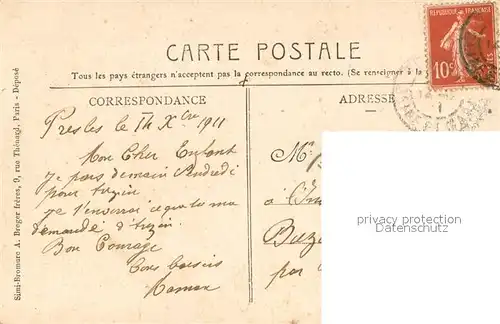 CARTE POSTALE
Tous les pays étrangers n'acceptent pas la correspondance au recto. (Se renseigner à la
CORRESPONDANCE
ADRESSE
REPUBLIQUE FRANÇAISE
10c
Presles le 14 Xbre 1911
Mon Cher Enfant
je pars demain Vendredi
pour
je t'enverrai ce que tu ma
demandé d'
Bon Courage
bons baisers
Maman
M.
à
par
privacy protection
Datenschutz
Simi-Bromure A. Breger frères, 9, rue Thénard, Paris - Déposé